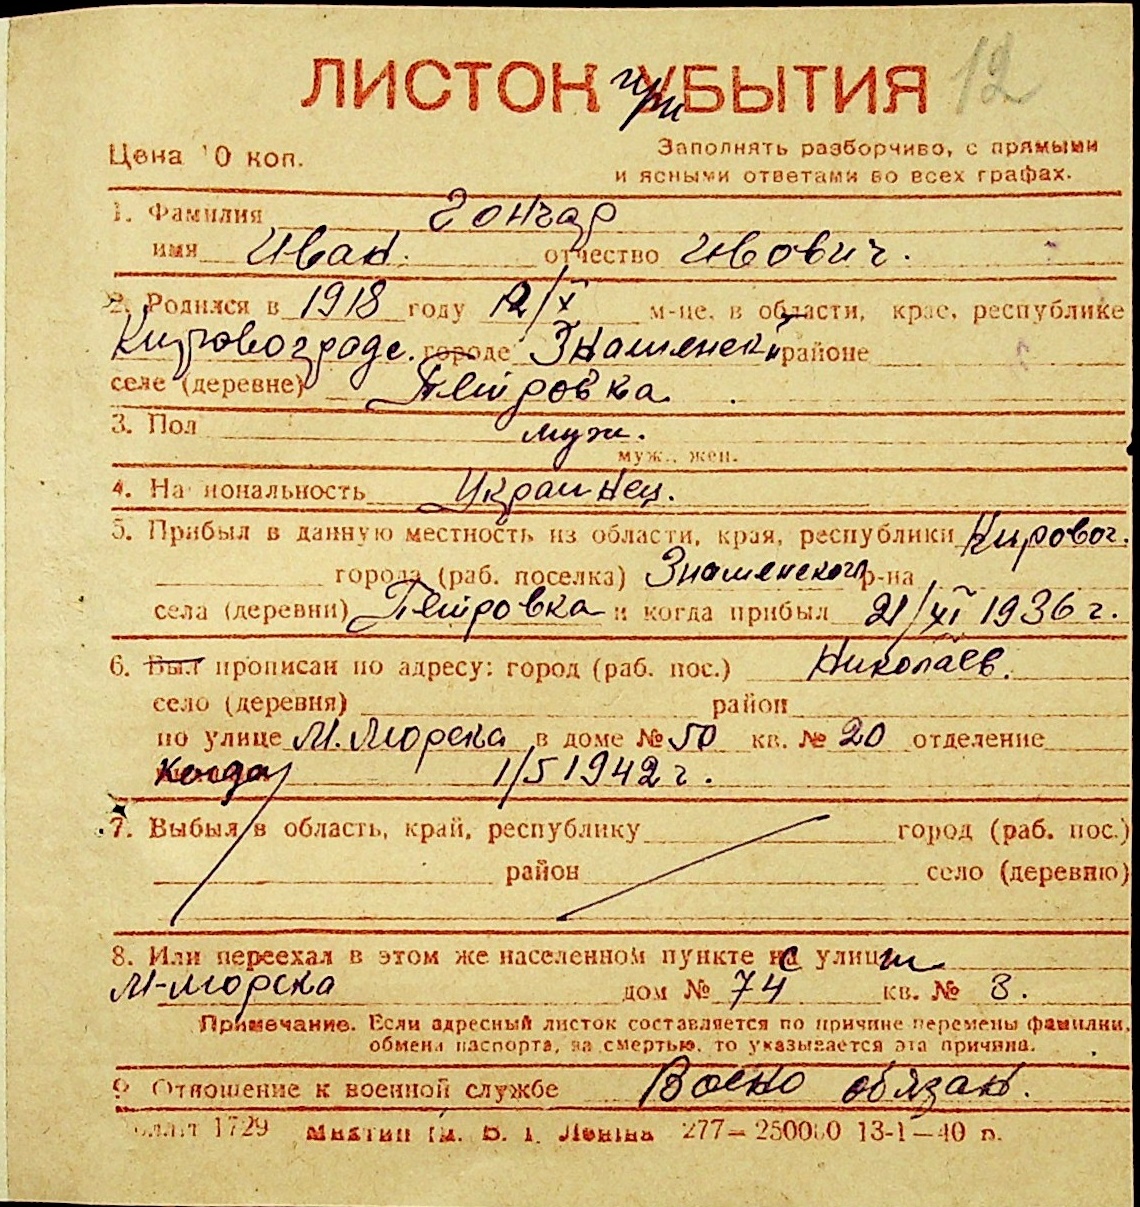 ЛИСТОК при УБЫТИЯ 12
Цена 10 коп.
Заполнять разборчиво, с прямыми
и ясными ответами во всех графах.
1. Фамилия Гончар
имя Иван. отчество Ивович.
2. Родился в 1918 году 12/X м-це, в области, крае, республике
Кировоградс. городе Знаменский районе
селе (деревне) Петровка.
3. Пол муж.
муж., жен.
4. На иональность Украинец.
5. Прибыл в данную местность из области, края, республики Кировог.
города (раб. поселка) Знаменского р-на
села (деревни) Петровка и когда прибыл 21/XI 1936 г.
6. Был прописан по адресу: город (раб. пос.) Николаев.
село (деревня) район
по улице М. Морска в доме № 50 кв. № 20 отделение
Когда 1/5 1942 г.
7. Выбыл в область, край, республику город (раб. пос.)
район село (деревню)
8. Или переехал в этом же населенном пункте с улиц
М-морска дом № 74 кв. № 3.
Примечание. Если адресный листок составляется по причине перемены фамилии,
обмена паспорта, за смертью, то указывается эта причина.
9 Отношение к военной службе Воено обязан.
1729 ім. В. І. Леніна 277— 250000 13-1—40 р.